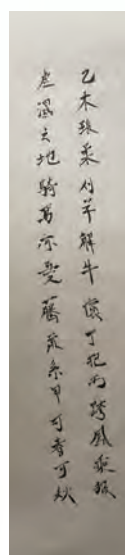 乙木雖柔刲羊解牛懷丁抱丙跨鳳乘猴
虛濕之地騎馬亦憂藤蘿系甲可春可秋